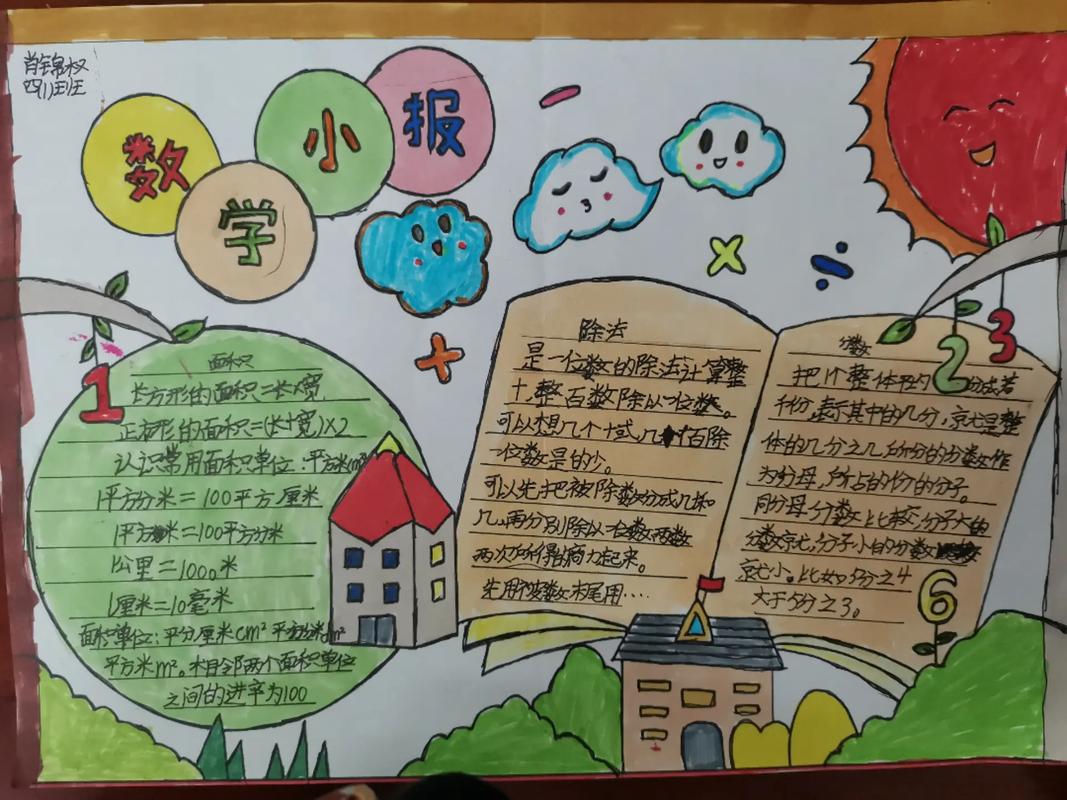 肖锦权
四(1)班
数学小报
面积
长方形的面积=长×宽
正方形的面积=(长+宽)×2
认识常用面积单位:平方米(m²
1平方分米=100平方厘米
1平方米=100平方分米
1公里=1000米
1厘米=10毫米
面积单位:平方厘米cm² 平方分米dm²
平方米m²。相邻两个面积单位
之间的进率为100
除法
是一位数的除法计算整
十,整百数除以一位数。
可以想几个十或,几个百除
一位数是的少。
可以先把被除数分成几和
几,再分别除以一位数,两数
两次所得的商加起来。
先用被数末尾用····
分数
把1个整体平均分成若
干份,表示其中的几分,就是整
体的几分之几,所分的分数作
为分母,所占的份的分子。
同分母分数比较,分子大的
分数就大,分子小的分数
就小。比如:5分之4
大于5分之3。
1
2
3
6